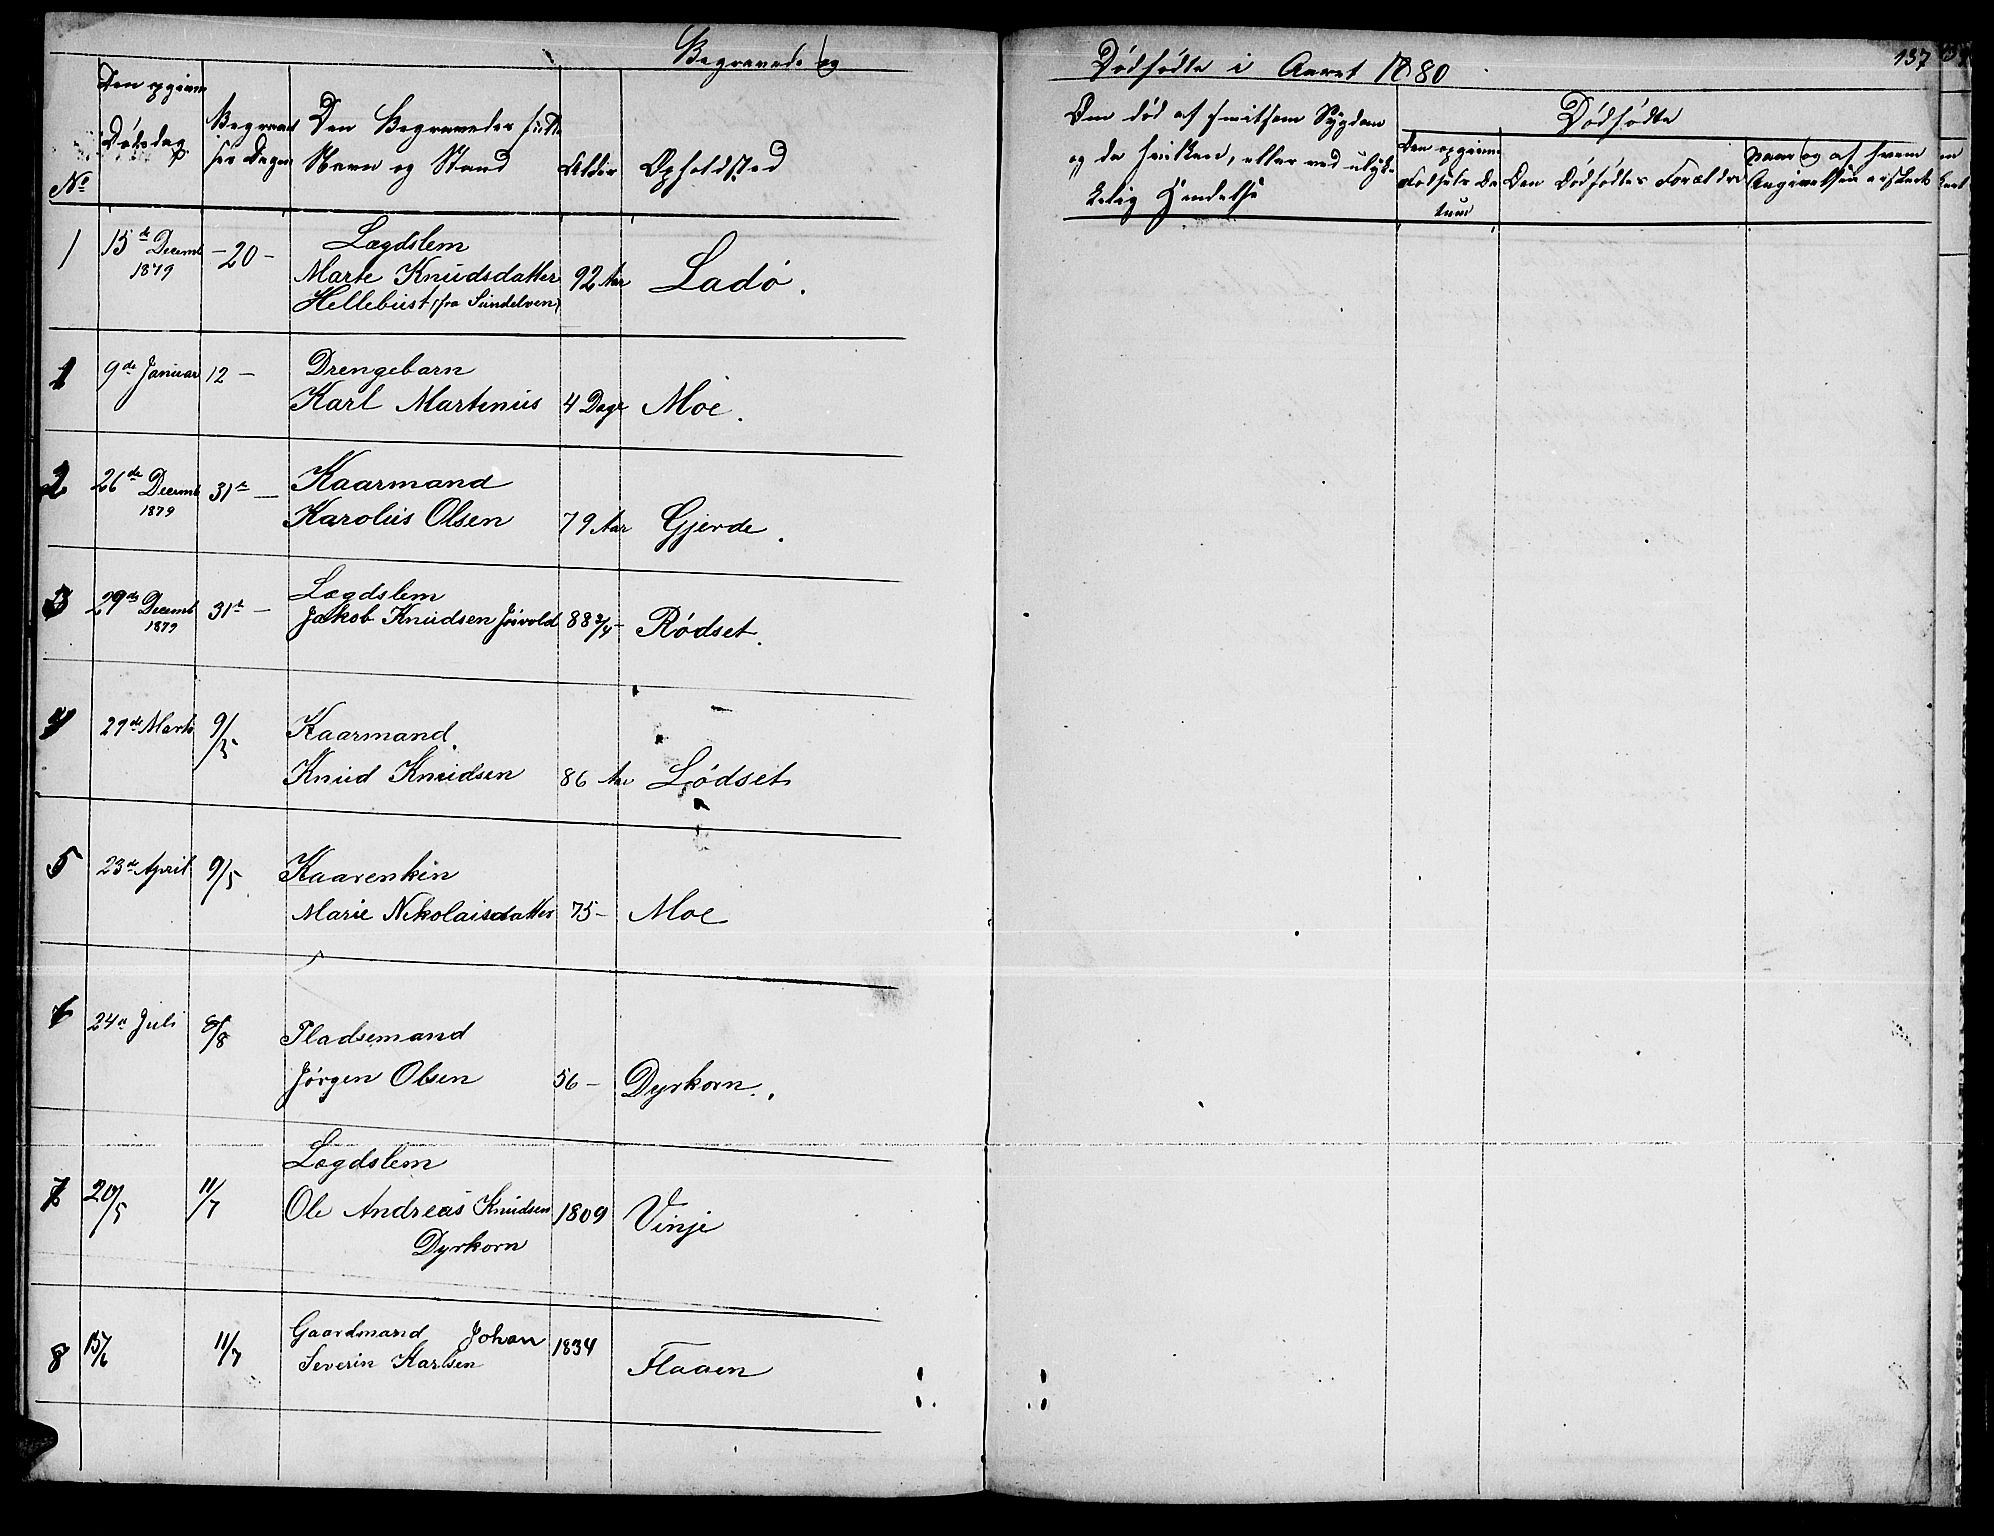 Begravede og
Dødfødte i Aaret 1880
137
No
Den opgivne
Dødsdag
Begravel
ses Dagen
Den Begravedes fulde
Navn og Stand
Alder
Opholdsted
Om død af smitsom Sygdom
og da hvilken, eller ved ulyk-
kelig Hændelse
Dødfødte
Den opgivne
Fødsels Da
tum
Den Dødfødtes Forældre
Naar og af hvem
Angivelsen er skeet
1 15de Decemb 1879 -20- Lægdslem
Marte Knudsdatter 92 Aar Ladø.
Hellebust (fra Sundelven)
1 9de Januar 12 - Drengebarn
Karl Martinus 4 Dage Moe.
2 26de Decemb 1879 31te - Kaarmand
Karolus Olsen 79 Aar Gjerde.
3 29de Decemb 1879 31te - Lægdslem
Jakob Knudsen 88 3/4 - Rødset.
4 29de Marts 9/5 Kaarmand
Knud Knudsen 86 Aar Lødset
5 23de April 9/5 Kaarenkin
Marie Nikolaisdatter 75 - Moe
6 24de Juli 8/8 Pladsemand
Jørgen Olsen 56 - Dyrkorn.
7 20/5 11/7 Lægdslem
Ole Andreas Knudsen 1809 Vinje
Dyrkorn
8 15/6 11/7 Gaardmand Johan 1834
Severin Karlsen Flaaen